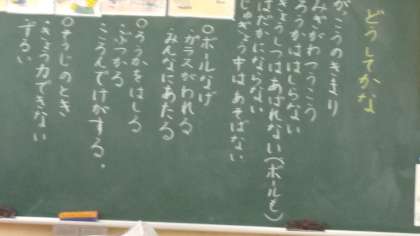 どうしてかな
がっこうのきまり
みぎがわつうこう
ろうかははしらない
きょうしつはあばれない(ボールも)
はだかにならない
じゅぎょう中はあそばない
○ボールなげ
・ガラスがわれる
・みんなにあたる
○ろうかをはしる
・ぶつかる
・ころんでけがする。
○そうじのとき
・きょう力できない
・ずるい